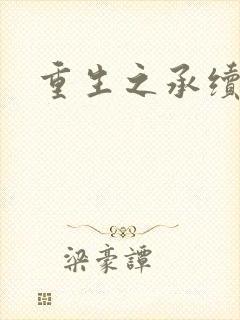 重生之承续
梁豪譚